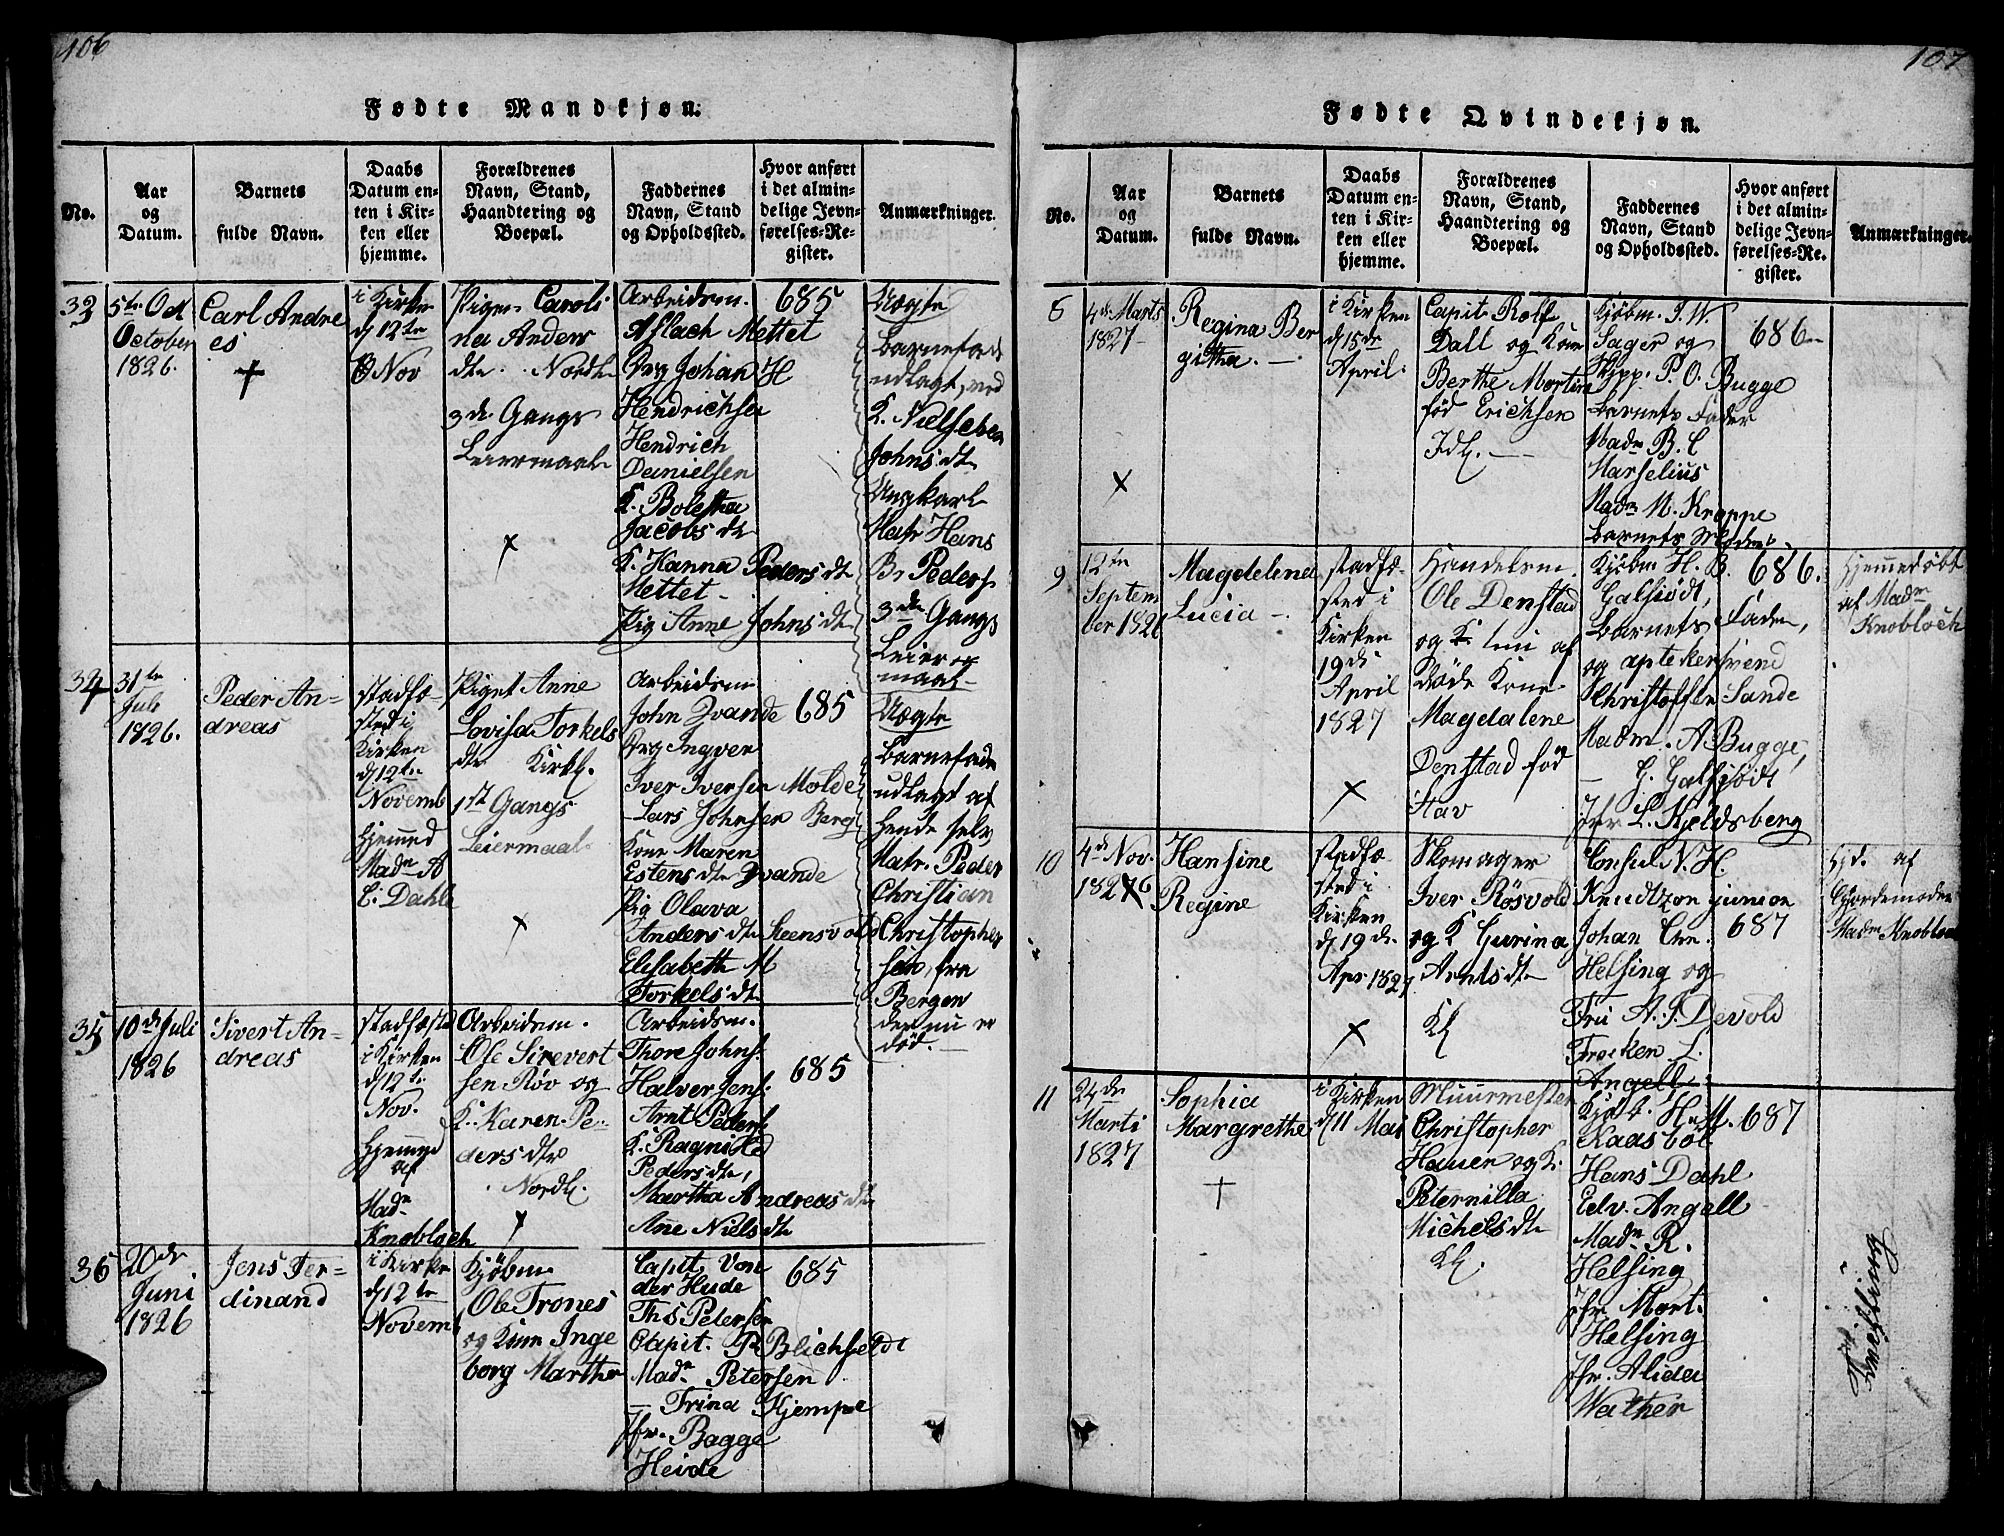 106
Fødte Mandkjøn.
No.
Aar
og
Datum.
Barnets
fulde Navn.
Daabs
Datum en-
ten i Kir-
ken eller
hjemme.
Forældrenes
Navn, Stand,
Haandtering og
Boepæl.
Faddernes
Navn, Stand
og Opholdssted.
Hvor anført
i det almin-
delige Jevn-
førelses-Re-
gister.
Anmærkninger.
33
5te Oct
October
1826.
Carl Andre
es
i Kirken
d 12te
Nov
Pigen Caroli
na Anders
dtr. Nordl.
3de Gangs
Leiermaal
Arbeidsm.
Aslach Mettet
Drg Johan
Hendrichsen
Hendrich
Danielsen
K. Boletha
Jacobs dt
K. Hanna Peders dt
Mettet
Pig Anne Johns dt
685
Uægte
Barnefader
udlagt, ved
K. Nielseben
Johns dt
Ungkarl
Matr Hans
Br Peders
3de Gangs
Leier
maal
34
31te
Juli
1826.
Peder An-
dreas
stadfæ-
sted i
Kirken
d 12te
Novemb
Hjemmed
Madm A
C. Dahle
Piget Anne
Lovisa Torkels
dtr Kirkl.
1st Gangs
Leiermaal
Arbeidsm
John Qvande
Drg Ingver
Iver Iversen Molde
Lars Johnsen Berg
Kone Maren
Estens dtr Qvande
Pig Olava
Anders dtr Steensvold
Elisabeth M
Torkels dt
685
Uægte
Barnefader
udlagt af
hende selv
Matr. Peder
Christian
Christopher
sen, fra
Bergen
der nu er
død.
35
10de Juli
1826
Sivert An-
dreas
stadfæsted
i Kirken
d 12te
Nov.
Hjemmed
af
Madm
Knobloch
Arbeidsm.
Ole Sirevert
sen Röv og
K. Karen Pe-
ders dtr
Nordl.
Arbeidsm.
Thore Johns.
Halver Jens.
Arnt Peders.
K. Ragnild
Peders dt,
Martha Andreas dt
Ane Niels dt
685
36
20de
Juni
1826
Jens Fer-
dinand
i Kirken
d 12te
Novemb
Kjöbm
Ole Trones
og Kone Inge
borg Marthe
Capit. Von
der Hude
Ths Petersen
Capit. P. Blichfeldt
Madm Petersen
Trina Kjempe
Jfr. Bagge
Heide
685
107
Fødte Qvindekjøn.
No.
Aar
og
Datum.
Barnets
fulde Navn.
Daabs
Datum en-
ten i Kir-
ken eller
hjemme.
Forældrenes
Navn, Stand,
Haandtering og
Boepæl.
Faddernes
Navn, Stand
og Opholdssted.
Hvor anført
i det almin-
delige Jevn-
førelses-Re-
gister.
Anmærkninger.
8
4de Marts
1827
Regina Ber
githa.
i Kirken
d 15de
April.
Capit Rolf
Dall og Kone
Berthe Martine
fød Erichsen
Kjöbm. J. W.
Sager og
Skipp. P. O. Bugge
Barnets Fader
Madm B. C
Marselius
Madm M. Kroppe
Barnets Moder
686
9
12te
Septem
ber 1826
Magdelina
Lucia
stadfæ-
sted i
Kirken
19de
April
1827
Handelsm
Ole Denstad
og af
døde Kone
Magdalene
Denstad fød
Stav
Kjöbm H. B.
Galsiödt,
Barnets Fader,
og aptekersvend
Christoffer Sande
Madm. A Bugge,
G. Galsjödt
Jfr L. Kjeldsberg
686.
Hjemmedøbt
af Madm
Knobloch
10
4de Nov.
1826
Hansine
Regine
stadfæ-
sted i
Kirken
d 19de
Apr 1827
Skomager
Iver Rösvold
og K Gurina
Arnts dtr
Kl
Consul N. H.
Knudtzon junior
Johan Chr.
Helsing og
Fru A. F. Devold
Frøken L.
Angell
687
Hjd. af
Gjordemoder
Madm Knobloch
11
24de
Marti
1827
Sophia
Margrethe
i Kirken
d 11 Mai
Muurmester
Christopher
Hauer og K.
Peternilla
Michels dtr
Kl.
Kjöb. H. M.
Kaasböl
Hans Dahl
Edv. Angell
Madm R.
Helsing
Jfr Mart.
Helsing
Jfr. Alida
Wather
687